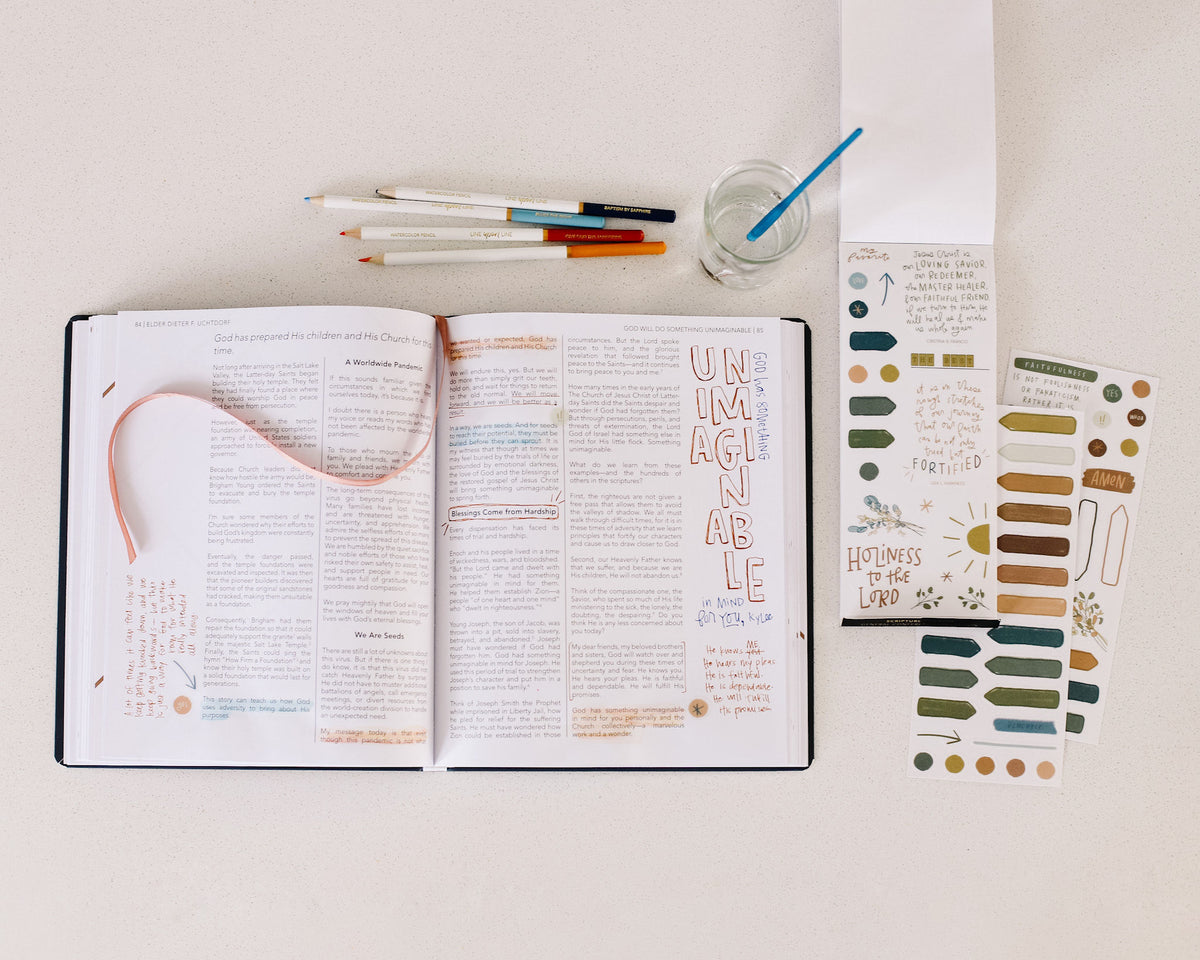 WATERCOLOR PENCIL
BAPTISM BY SAPPHIRE
WATERCOLOR PENCIL
LINE upon LINE
84 | ELDER DIETER F. UCHTDORF
God has prepared His children and His Church for this
time.
Not long after arriving in the Salt Lake
Valley, the Latter-day Saints began
building their holy temple. They felt
they had finally found a place where
they could worship God in peace
and be free from persecution.
However, just as the temple
foundation was nearing completion,
an army of United States soldiers
approached to forcibly install a new
governor.
Because Church leaders did not
know how hostile the army would be,
Brigham Young ordered the Saints
to evacuate and bury the temple
foundation.
I'm sure some members of the
Church wondered why their efforts to
build God's kingdom were constantly
being frustrated.
Eventually, the danger passed,
and the temple foundations were
excavated and inspected. It was then
that the pioneer builders discovered
that some of the original sandstones
had cracked, making them unsuitable
as a foundation.
Consequently, Brigham had them
repair the foundation so that it could
adequately support the granite walls
of the majestic Salt Lake Temple.
Finally, the Saints could sing the
hymn "How Firm a Foundation" and
know their holy temple was built on
a solid foundation that would last for
generations.
This story can teach us how God
uses adversity to bring about His
purposes.
A lot of times it can feel like we
keep getting knocked down or we
keep going backwards - but this
is just a way for God to make
room for what He
really intended
all along
YES
A Worldwide Pandemic
If this sounds familiar given the
circumstances in which we find
ourselves today, it's because it is.
I doubt there is a person who hears
my voice or reads my words who has
not been affected by the worldwide
pandemic.
To those who mourn the
family and friends, we mourn with
you. We plead with Heavenly
to comfort and
The long-term consequences of the
virus go beyond physical health.
Many families have lost incomes
and are threatened with hunger,
uncertainty, and apprehension. We
admire the selfless efforts of so many
to prevent the spread of this disease.
We are humbled by the quiet sacrifice
and noble efforts of those who have
risked their own safety to assist, heal,
and support people in need. Our
hearts are full of gratitude for your
goodness and compassion.
We pray mightily that God will open
the windows of heaven and fill your
lives with God's eternal blessings.
We Are Seeds
There are still a lot of unknowns about
this virus. But if there is one thing I
do know, it is that this virus did not
catch Heavenly Father by surprise.
He did not have to muster additional
battalions of angels, call emergency
meetings, or divert resources from
the world-creation division to handle
an unexpected need.
My message today is that even
though this pandemic is not what
GOD WILL DO SOMETHING UNIMAGINABLE | 85
we wanted or expected, God has
prepared His children and His Church
for this time.
We will endure this, yes. But we will
do more than simply grit our teeth,
hold on, and wait for things to return
to the old normal. We will move
forward, and we will be better as a
result.
In a way, we are seeds. And for seeds
to reach their potential, they must be
buried before they can sprout. It is
my witness that though at times we
may feel buried by the trials of life or
surrounded by emotional darkness,
the love of God and the blessings of
the restored gospel of Jesus Christ
will bring something unimaginable
to spring forth.
Blessings Come from Hardship
Every dispensation has faced its
times of trial and hardship.
Enoch and his people lived in a time
of wickedness, wars, and bloodshed.
"But the Lord came and dwelt with
his people." He had something
unimaginable in mind for them.
He helped them establish Zion—a
people "of one heart and one mind"
who "dwelt in righteousness."
Young Joseph, the son of Jacob, was
thrown into a pit, sold into slavery,
betrayed, and abandoned. Joseph
must have wondered if God had
forgotten him. God had something
unimaginable in mind for Joseph. He
used this period of trial to strengthen
Joseph's character and put him in a
position to save his family.
Think of Joseph Smith the Prophet
while imprisoned in Liberty Jail, how
he pled for relief for the suffering
Saints. He must have wondered how
Zion could be established in those
circumstances. But the Lord spoke
peace to him, and the glorious
revelation that followed brought
peace to the Saints—and it continues
to bring peace to you and me.
How many times in the early years of
The Church of Jesus Christ of Latter-
day Saints did the Saints despair and
wonder if God had forgotten them?
But through persecutions, perils, and
threats of extermination, the Lord
God of Israel had something else in
mind for His little flock. Something
unimaginable.
What do we learn from these
examples—and the hundreds of
others in the scriptures?
First, the righteous are not given a
free pass that allows them to avoid
the valleys of shadow. We all must
walk through difficult times, for it is in
these times of adversity that we learn
principles that fortify our characters
and cause us to draw closer to God.
Second, our Heavenly Father knows
that we suffer, and because we are
His children, He will not abandon us.
Think of the compassionate one, the
Savior, who spent so much of His life
ministering to the sick, the lonely, the
doubting, the despairing. Do you
think He is any less concerned about
you today?
My dear friends, my beloved brothers
and sisters, God will watch over and
shepherd you during these times of
uncertainty and fear. He knows you.
He hears your pleas. He is faithful
and dependable. He will fulfill His
promises.
God has something unimaginable
in mind for you personally and the
Church collectively—a marvelous
work and a wonder.
GOD has something
UNIMAGINABLE
in MIND
for YOU, KyLee
He knows ME
He hears my pleas
He is faithful
He is dependable
He will fulfill
His promises
my
favorite
LOVE
Jesus Christ is
our LOVING SAVIOR,
our REDEEMER,
the MASTER HEALER,
& our FAITHFUL FRIEND.
if we turn to Him, He
will heal us & make
us whole again
CRISTINA B. FRANCO
THE BEST
it is in those
rough stretches
of our journey
that our faith
can be not only
tried but
FORTIFIED
LISA L. HARKNESS
HOLINESS
to the
LORD
SCRIPTURE
FAITHFULNESS
IS NOT FOOLISHNESS
OR FANATICISM.
RATHER IT IS
YES
!!
WHOA
AMEN
REMEMBER